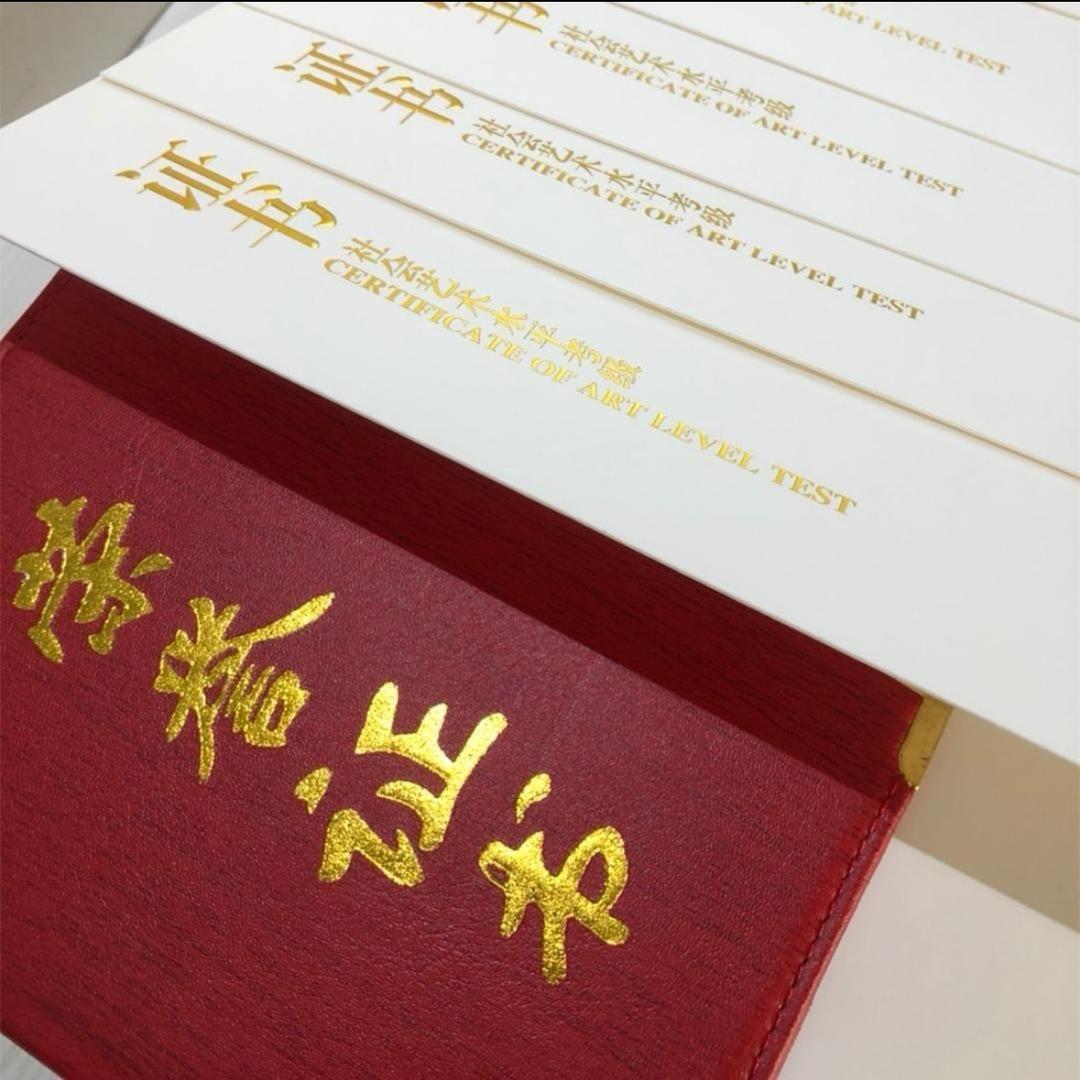 ART LEVEL TEST
证书
社会艺术水平考级
CERTIFICATE OF ART LEVEL TEST
证书
社会艺术水平考级
CERTIFICATE OF ART LEVEL TEST
证书
社会艺术水平考级
CERTIFICATE OF ART LEVEL TEST
荣誉证书